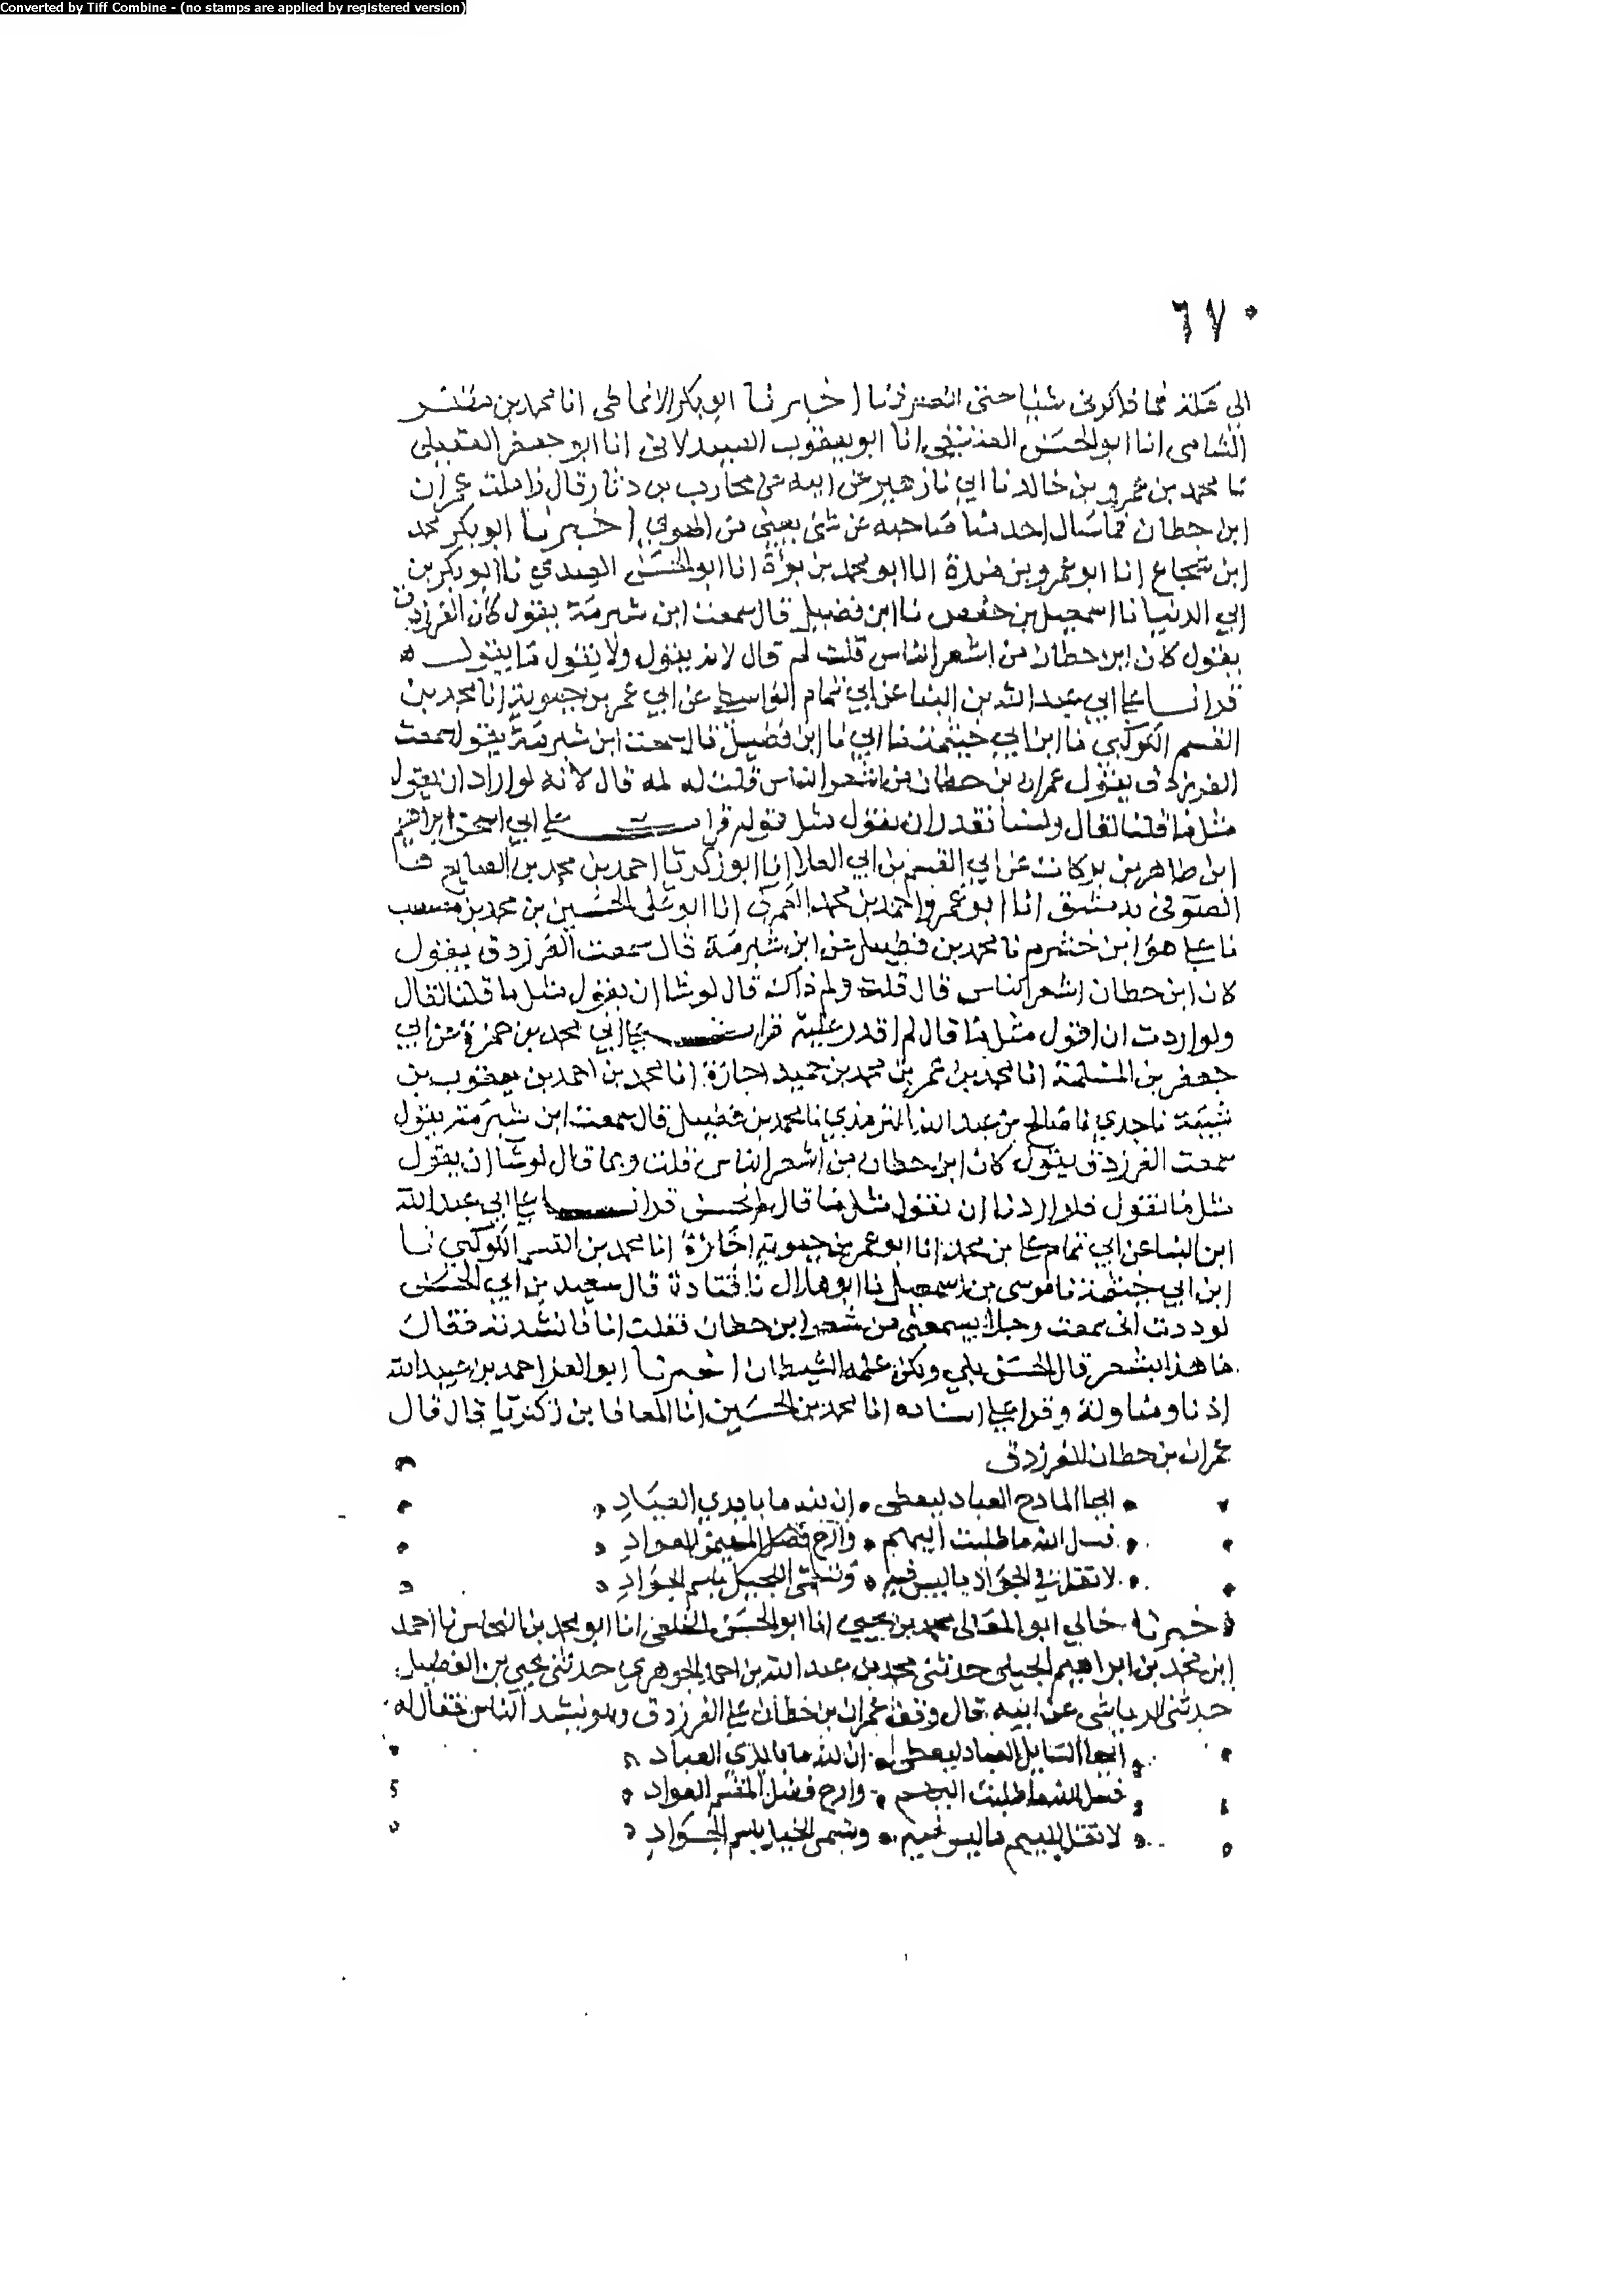 Converted by Tiff Combine - (no stamps are applied by registered version)
٦٧٠
الى مكة فما ذاكرنى شيئا حتى انصرفنا اخبرنا ابو بكر الانماطى انا محمد بن مظفر
الشامى انا ابو الحسن العتيقى انا ابو يعقوب الصيدلانى انا ابو جعفر العقيلى
نا محمد بن عمرو بن خالد نا ابي نا زهير عن ابيه عن محارب بن دثار قال زاملت عمران
ابن حطان فما سال احدنا صاحبه عن شى يعنى من الهوى اخبرنا ابو بكر محمد
ابن شجاع انا ابو عمرو بن مندة انا ابو محمد بن يوة انا ابو الحسن العبدي نا ابو بكر بن
ابي الدنيا نا اسمعيل بن حفص نا ابن فضيل قال سمعت ابن شبرمة يقول كان الفرزدق
يقول كان ابن حطان من اشعر الناس قلت لم قال لانه يقول ولا نقول ما يقول
قرانا على ابي عبد الله بن البنا عن ابي تمام الواسطى عن ابي عمر بن حيوية انا محمد بن
القسم الكوكبي نا ابن ابي خيثمة نا ابي نا ابن فضيل قال سمعت ابن شبرمة يقول سمعت
الفرزدق يقول عمران بن حطان من اشعر الناس قلت له لمه قال لانه لو اراد ان يقول
مثل ما قلنا لقال ولسنا نقدر ان نقول مثل قوله قرات على ابي اسحق ابراهيم
ابن طاهر بن بركات عن ابي القسم بن ابي العلا انا ابو زكريا احمد بن محمد بن الصايح
الصوفى بدمشق انا ابو عمرو احمد بن محمد العمرى انا ابو على الحسين بن محمد بن مصعب
نا على هو ابن خشرم نا محمد بن فضيل عن ابن شبرمة قال سمعت الفرزدق يقول
كان ابن حطان اشعر الناس قال قلت ولم ذاك قال لو شا ان يقول مثل ما قلنا لقال
ولو اردت ان اقول مثل ما قال لم اقدر عليه قرات على ابي محمد بن حمزة عن ابي
جعفر بن المسلمة انا محمد بن عمر بن محمد بن حميد اجازة انا محمد بن احمد بن يعقوب بن
شيبة نا جدي نا صالح بن عبد الله الترمذي نا محمد بن فضيل قال سمعت ابن شبرمة يقول
سمعت الفرزدق يقول كان ابن حطان من اشعر الناس قلت وبما قال لو شا ان يقول
مثل ما نقول فلو اردنا ان نقول مثل ما قال لم نحسن قرانا على ابي عبد الله
ابن البنا عن ابي تمام على بن محمد انا ابو عمر بن حيوية اجازة انا محمد بن القسم الكوكبي نا
ابن ابي خيثمة نا موسى بن اسمعيل نا ابو هلال نا قتادة قال سعيد بن ابي الحسن
لوددت انى سمعت رجلا يسمعنى من شعر ابن حطان فقلت انا فانشدته فقال
ما هذا بشعر قال الحسن بلي ولكن علمه الشيطان اخبرنا ابو العز احمد بن عبيد الله
اذنا ومناولة وقرا على اسناده انا محمد بن الحسين انا المعافا بن زكريا قال قال
عمران بن حطان للفرزدق
ايها المادح العباد ليعطى ان لله ما بايدي العباد
فسل الله ما طلبت اليهم وارج فضل المقسم العواد
لا تقل في الجواد ما ليس فيه وتسمى البخيل باسم الجواد
اخبرنا خالي ابو المعالى محمد بن يحيى انا ابو الحسن الخلعى انا ابو محمد بن النحاس نا احمد
ابن محمد بن ابراهيم الجبلى حدثنى محمد بن عبد الله بن احمد الجوهري حدثنى يحيى بن الفضيل
حدثنى الرياشى عن ابيه قال وقف عمران بن حطان على الفرزدق وهو ينشد الناس فقال له
ايها السايل العباد ليعطى ان لله ما بايدي العباد
فسل الله ما طلبت اليهم وارج فضل المقسم العواد
لا تقل للئيم ما ليس فيه وتسمى البخيل باسم الجواد